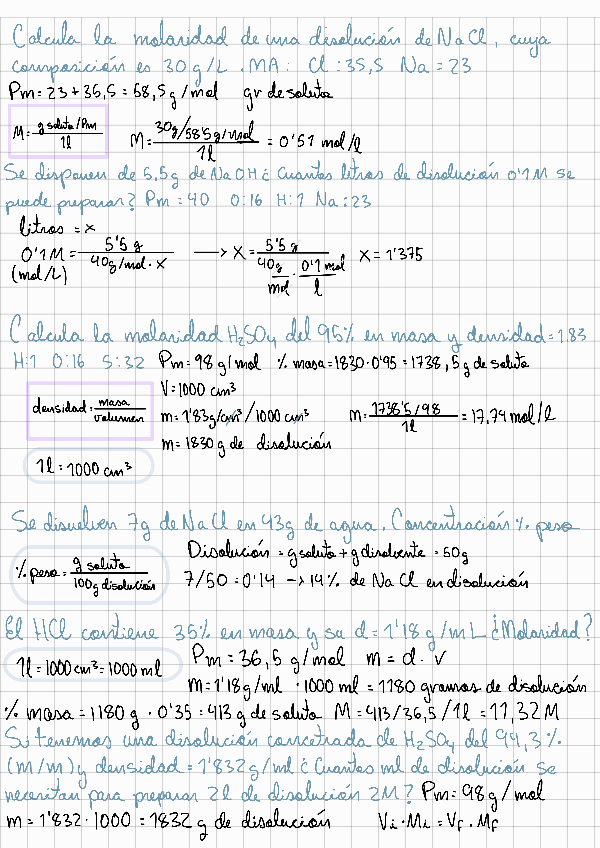 Calcula la molaridad de una disolución de NaCl, cuya
composición es 30 g/L. MA: Cl: 35,5 Na = 23
Pm = 23 + 35,5 = 58,5 g/mol gr de soluto
M = g soluto/Pm / 1l M = 30g/58'5 g/mol / 1l = 0'51 mol/l
Se disponen de 5,5g de NaOH ¿ Cuantos litros de disolución 0'1M se
puede preparar? Pm = 40 O:16 H:1 Na:23
litros = x
0'1 M = 5'5 g / 40 g/mol · x → X = 5'5 g / 40g/mol · 0'1 mol/l X = 1'375
(mol/L)
Calcula la molaridad H₂SO₄ del 95% en masa y densidad = 1.83
H:1 O:16 S:32 Pm = 98 g/mol % masa = 1830 · 0'95 = 1738,5 g de soluto
V = 1000 cm³
densidad = masa / volumen m = 1'83 g/cm³ / 1000 cm³ M = 1738'5 / 98 / 1l = 17,74 mol/l
m = 1830 g de disolución
1l = 1000 cm³
Se disuelven 7g de NaCl en 43g de agua. Concentración % peso
% peso = g soluto / 100g disolución Disolución = g soluto + g disolvente = 50g
7/50 = 0'14 → 14% de NaCl en disolución
El HCl contiene 35% en masa y su d = 1'18 g/mL ¿Molaridad?
1l = 1000 cm³ = 1000 ml Pm = 36,5 g/mol m = d · v
m = 1'18 g/ml · 1000 ml = 1180 gramos de disolución
% masa = 1180 g · 0'35 = 413 g de soluto M = 413/36,5/1l = 11,32 M
Si tenemos una disolución concetrada de H₂SO₄ del 94,3%
(m/m) y densidad = 1'832 g/ml ¿ Cuantos ml de disolución se
necesitan para preparar 2l de disolución 2M? Pm = 98 g/mol
m = 1'832 · 1000 = 1832 g de disolución Vi · Mi = Vf · Mf